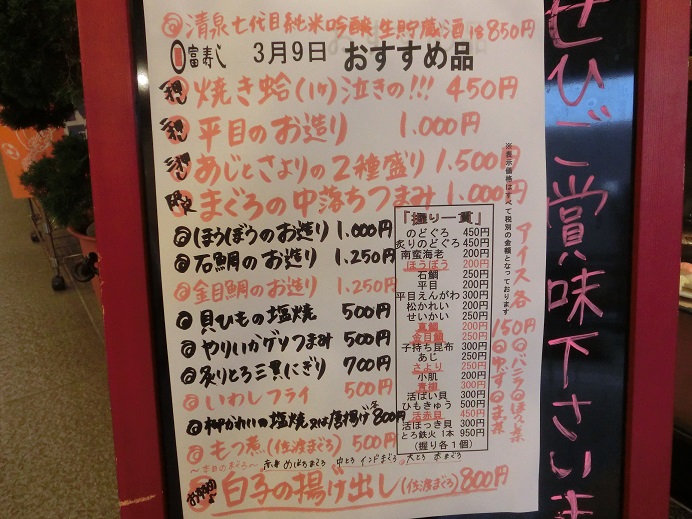 ◎清泉七代目純米吟醸生貯蔵酒 1合850円
富寿し 3月9日 おすすめ品
焼き蛤(1ケ)泣きの!!! 450円
平目のお造り 1.000円
あじとさよりの2種盛り 1.500円
限定 まぐろの中落ちつまみ 1.000円
◎ほうぼうのお造り 1.000円
◎石鯛のお造り 1.250円
◎金目鯛のお造り 1.250円
◎貝ひもの塩焼 500円
◎やりいかゲソつまみ 500円
◎炙りとろ三貫にぎり 700円
◎いわしフライ 500円
◎柳かれいの塩焼又は唐揚げ 各800円
◎もつ煮(佐渡まぐろ) 500円
〜本日のまぐろ〜 赤身 めばちまぐろ 中とろ インドまぐろ 大とろ 本まぐろ
白子の揚げ出し(佐渡まぐろ) 800円
『握り一貫』
のどぐろ 450円
炙りのどぐろ 450円
南蛮海老 200円
ほうぼう 200円
石鯛 250円
平目 200円
平目えんがわ 300円
松かれい 200円
せいかい 250円
真鯛 200円
金目鯛 250円
子持ち昆布 300円
あじ 250円
さより 250円
小肌 200円
青柳 300円
活ばい貝 300円
ひもきゅう 500円
活赤貝 450円
活ほっき貝 300円
とろ鉄火 1本 950円
(握り各1個)
※表示価格はすべて税別の金額となっております
アイス各150円
◎バニラ◎ほうじ茶
◎ゆず◎抹茶
ぜひご賞味下さいま